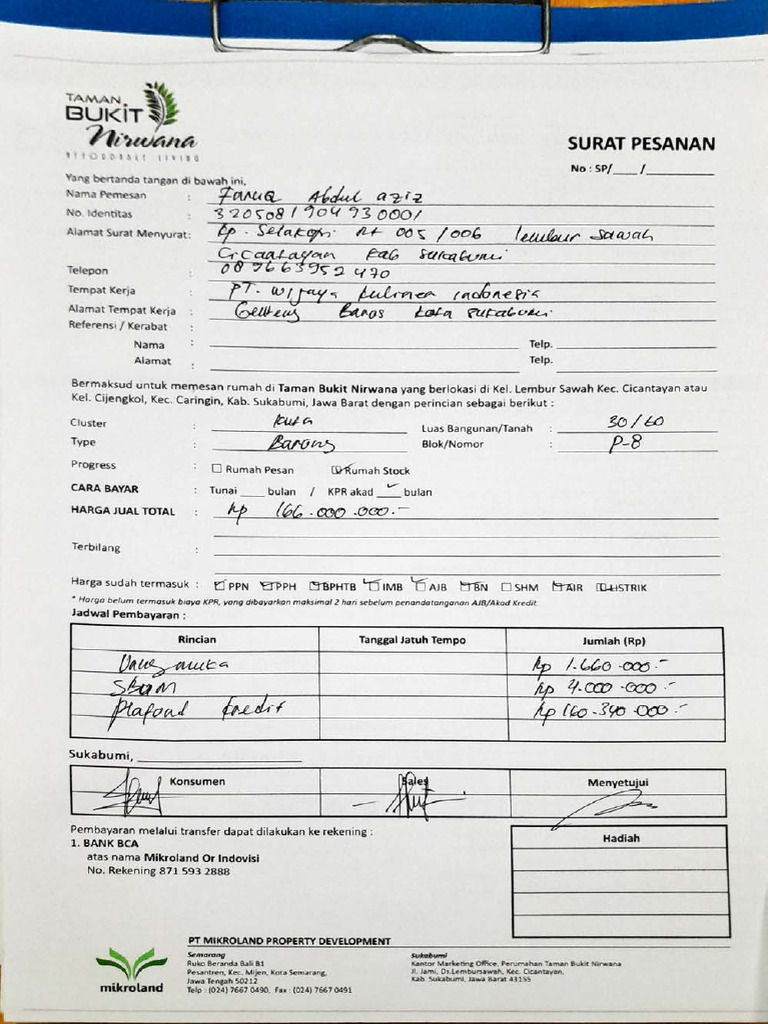 TAMAN
BUKIT
Nirwana
AFFORDABLE LIVING
SURAT PESANAN
No : SP/____/__________
Yang bertanda tangan di bawah ini,
Nama Pemesan : Faruq Abdul aziz
No. Identitas : 3205081904930001
Alamat Surat Menyurat : Kp. Selakopi Rt 005/006 lembur sawah
Cicantayan Kab Sukabumi
Telepon : 089663952470
Tempat Kerja : PT. Wijaya kulinea indonesia
Alamat Tempat Kerja : Genteng Baros kota sukabumi
Referensi / Kerabat :
Nama : Telp.
Alamat : Telp.
Bermaksud untuk memesan rumah di Taman Bukit Nirwana yang berlokasi di Kel. Lembur Sawah Kec. Cicantayan atau
Kel. Cijengkol, Kec. Caringin, Kab. Sukabumi, Jawa Barat dengan perincian sebagai berikut :
Cluster : kuta Luas Bangunan/Tanah : 30/60
Type : Barong Blok/Nomor : P-8
Progress : Rumah Pesan Rumah Stock
CARA BAYAR : Tunai ____ bulan / KPR akad ____ bulan
HARGA JUAL TOTAL : Rp 166.000.000.-
Terbilang :
Harga sudah termasuk : PPN PPH BPHTB IMB AJB BN SHM AIR LISTRIK
* Harga belum termasuk biaya KPR, yang dibayarkan maksimal 2 hari sebelum penandatanganan AJB/Akad Kredit.
Jadwal Pembayaran :
Rincian Tanggal Jatuh Tempo Jumlah (Rp)
Uang muka Rp 1.660.000.-
SBUM Rp 4.000.000.-
Plafond kredit Rp 160.340.000.-
Sukabumi, ____________________
Konsumen Sales Menyetujui
Pembayaran melalui transfer dapat dilakukan ke rekening :
1. BANK BCA
atas nama Mikroland Or Indovisi
No. Rekening 871 593 2888
Hadiah
mikroland
PT MIKROLAND PROPERTY DEVELOPMENT
Semarang
Ruko Beranda Bali B1
Pesantren, Kec. Mijen, Kota Semarang,
Jawa Tengah 50212
Telp : (024) 7667 0490, Fax : (024) 7667 0491
Sukabumi
Kantor Marketing Office, Perumahan Taman Bukit Nirwana
Jl. Jami, Ds.Lembursawah, Kec. Cicantayan,
Kab. Sukabumi, Jawa Barat 43155